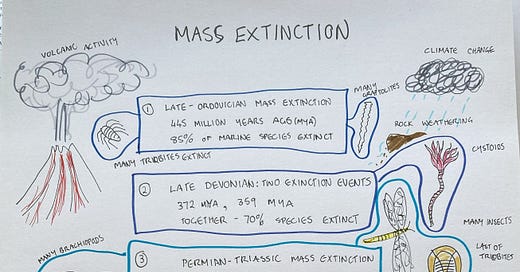 MASS EXTINCTION
VOLCANIC ACTIVITY
CLIMATE CHANGE
MANY GRAPTOLITES
1 LATE-ORDOVICIAN MASS EXTINCTION
445 MILLION YEARS AGO (MYA)
85% OF MARINE SPECIES EXTINCT
ROCK WEATHERING
MANY TRILOBITES EXTINCT
CYSTOIDS
2 LATE DEVONIAN: TWO EXINCTION EVENTS
372 MYA, 359 MYA
TOGETHER - 70% SPECIES EXTINCT
MANY INSECTS
MANY BRACHIOPODS
3 PERMIAN-TRIASSIC MASS EXTINCTION
LAST OF
TRILOBITES